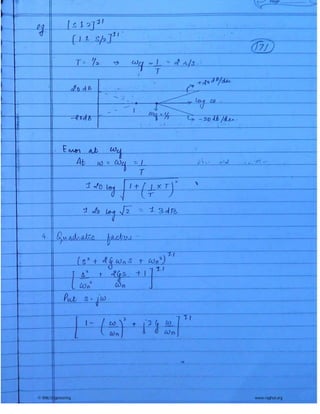 eg [s + 2]±1
[1 + s/2]±1
(171)
T = 1/2 → ωg = 1/T = 2 r/s
20 dB
+20dB/dec
log ω
1
-20dB
-20 dB/dec
Error at ωg
At ω = ωg = 1/T
± 20 log √1 + (1/T × T)²
± 20 log √2 = ± 3dB
4. Quadratic factors
(s² + 2ξωn s + ωn²)±1
[s²/ωn² + 2ξs/ωn + 1]±1
Put s = jω
[1 - (ω/ωn)² + j2ξ ω/ωn]±1
www.raghul.org